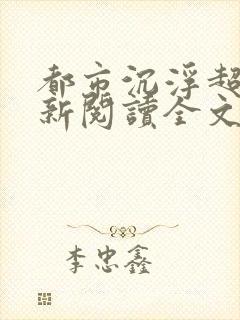 都市沉浮超
新閱讀全文
李忠鑫